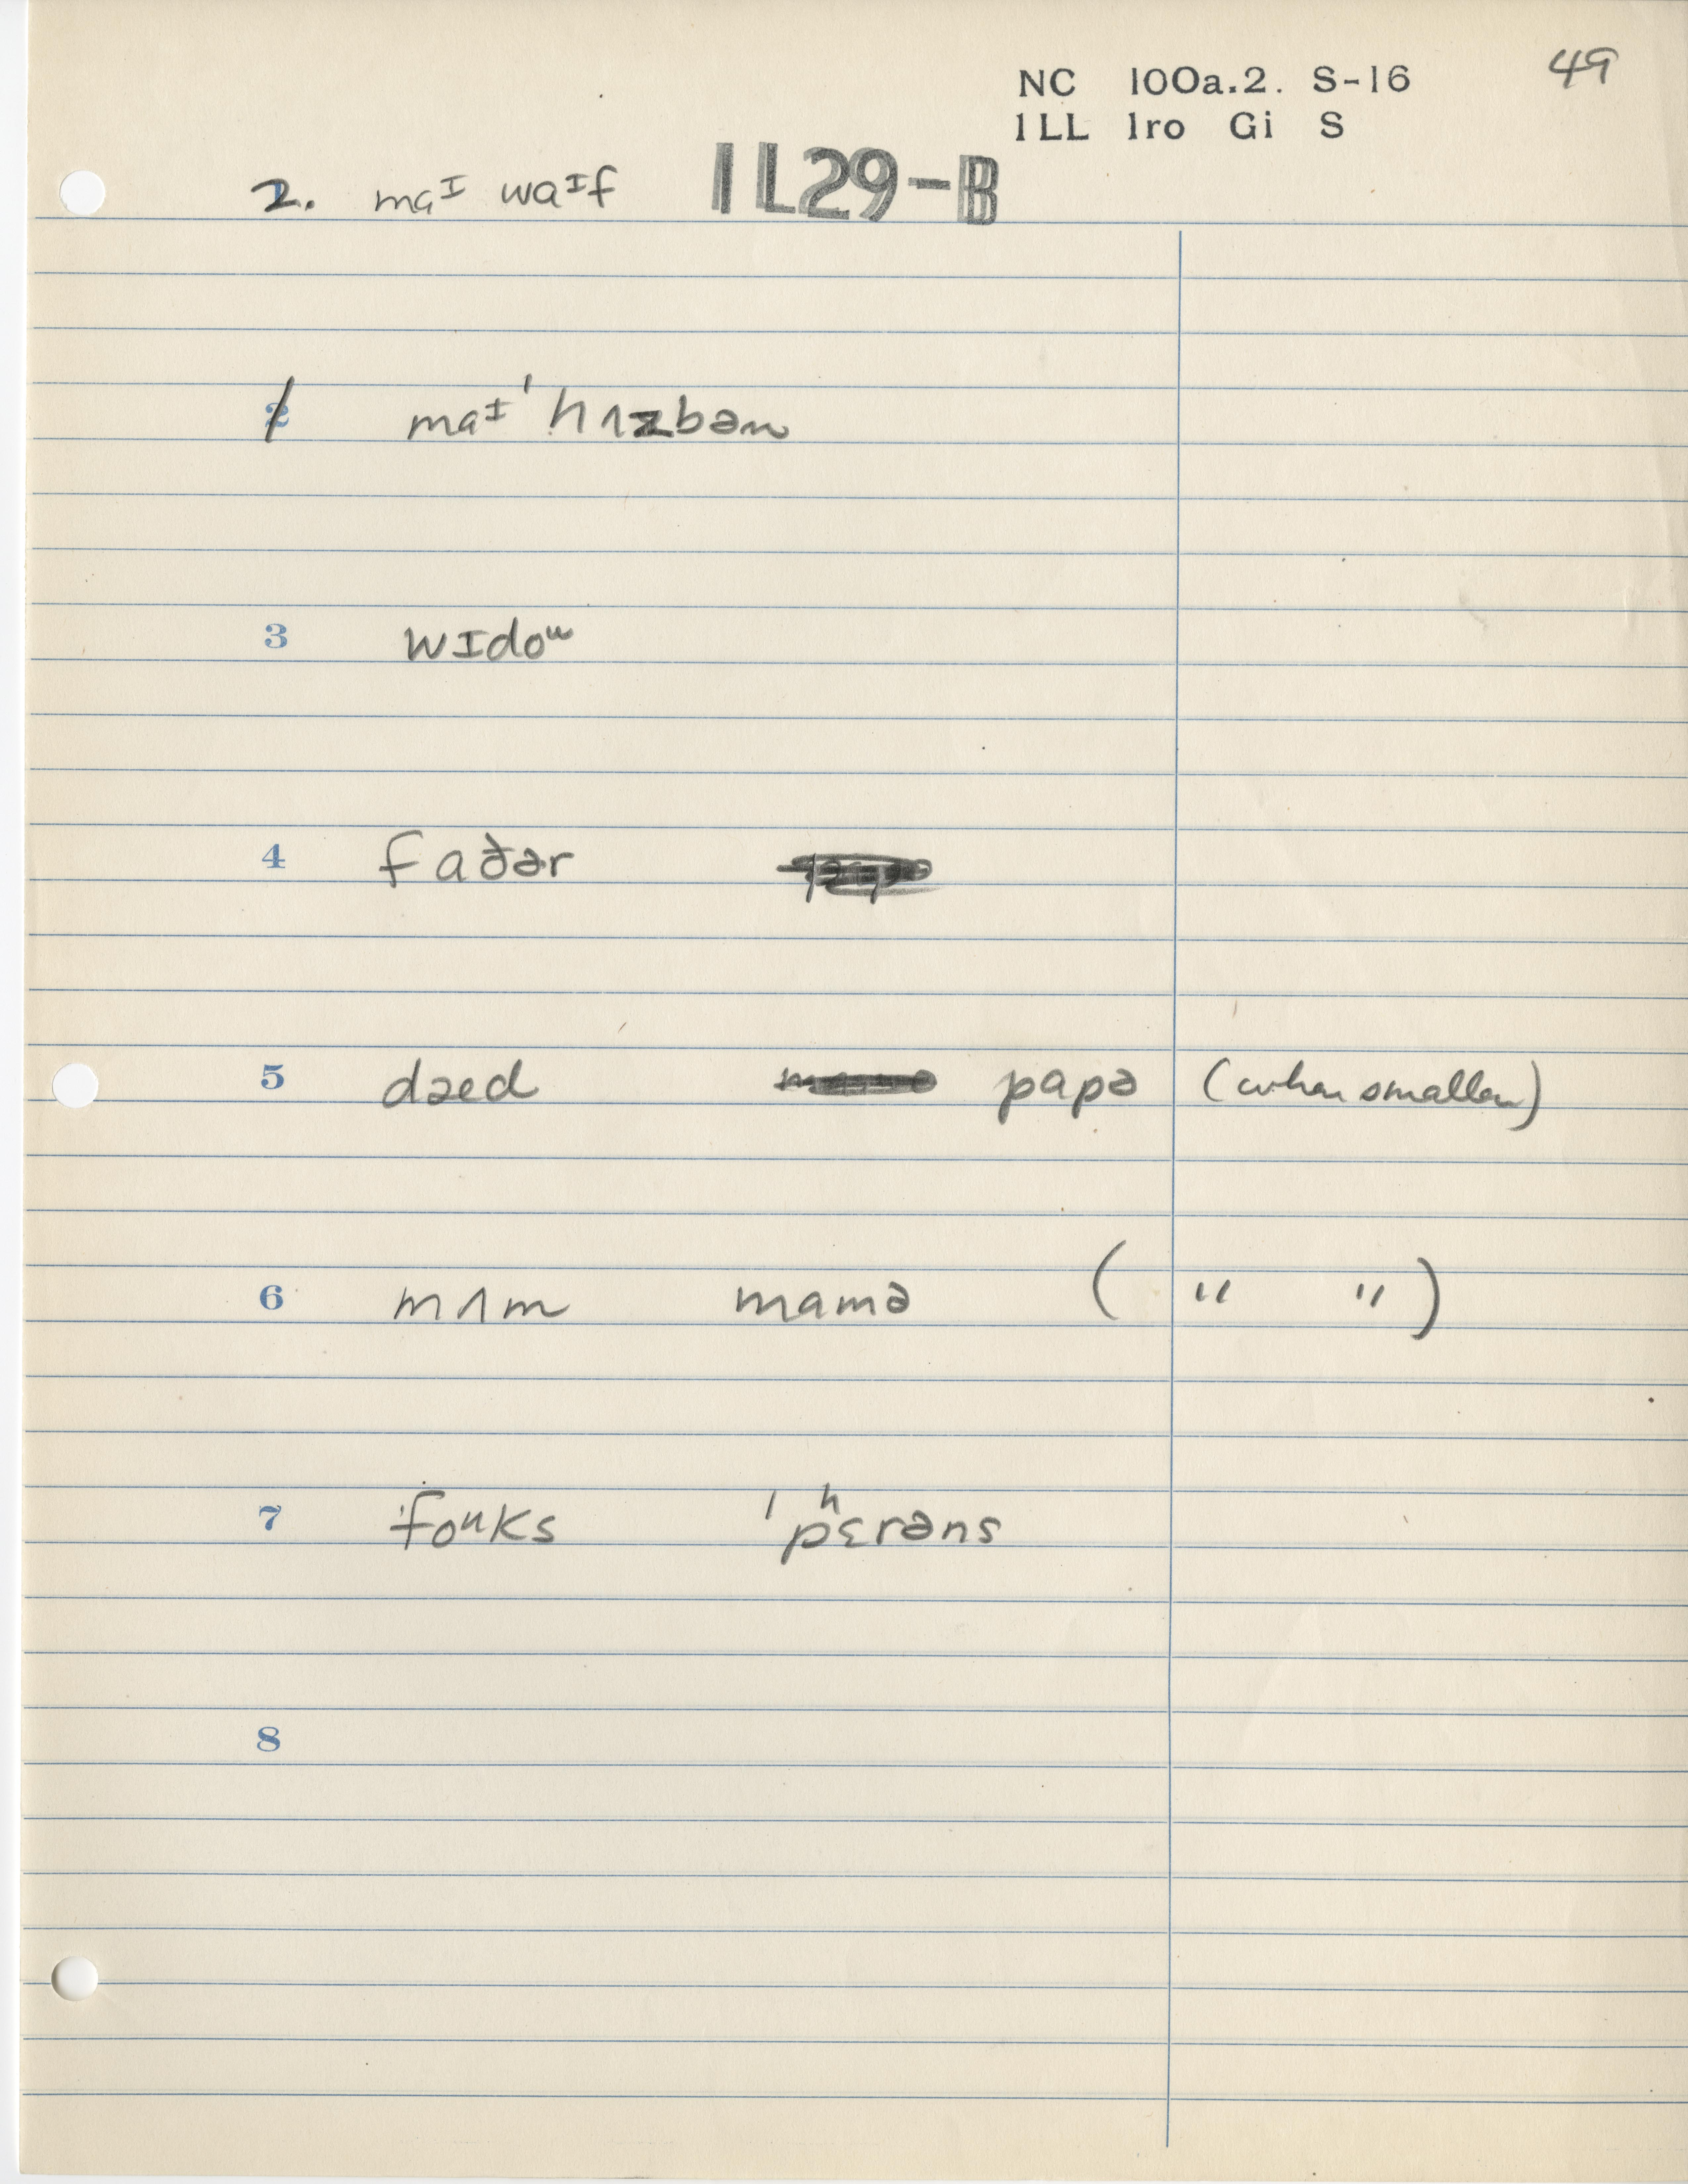 NC 100a.2. S-16 49
ILL Iro Gi S
2. maᶦ waᶦf IL29-B
maᶦ ˈhʌzbən
3 wɪdoᵘ
4 faðər
5 dæd papə (when smaller)
6 mʌm mamə ( " " )
7 ˈfoᵘks ˈpʰɛrəns
8